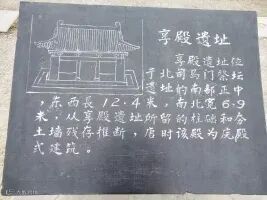 享殿遗址
享殿遗址位
于北司马门祭坛
遗址的南部正中
,东西長12.4米,南北宽6.9
米,从享殿遗址所留的柱础和夯
土墙残存推断,唐时该殿为庑殿
式建筑。